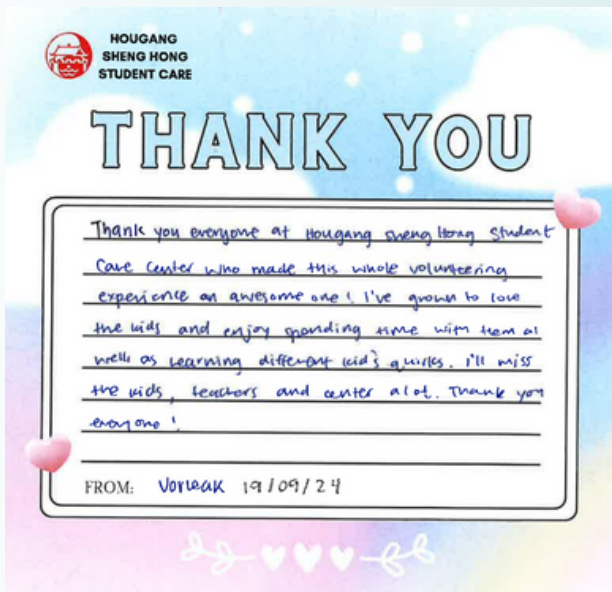 HOUGANG
SHENG HONG
STUDENT CARE
THANK YOU
Thank you everyone at Hougang Sheng Hong Student
Care Center who made this whole volunteering
experience an awesome one! I've grown to love
the kids and enjoy spending time with them as
well as learning different kid's quirks. I'll miss
the kids, teachers and center alot. Thank you
everyone!
FROM: Vorleak 19/09/24